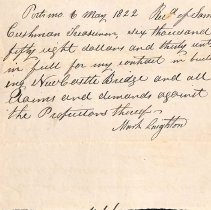 Portsmo. 6 May 1822 Recd of Sam
Cushman Treasurer, six thousand
fifty eight dollars and thirty
in full for my contract in buil
ing New Castle Bridge and all
Claims and demands against
the Proprietors thereof -
Mark Laighton